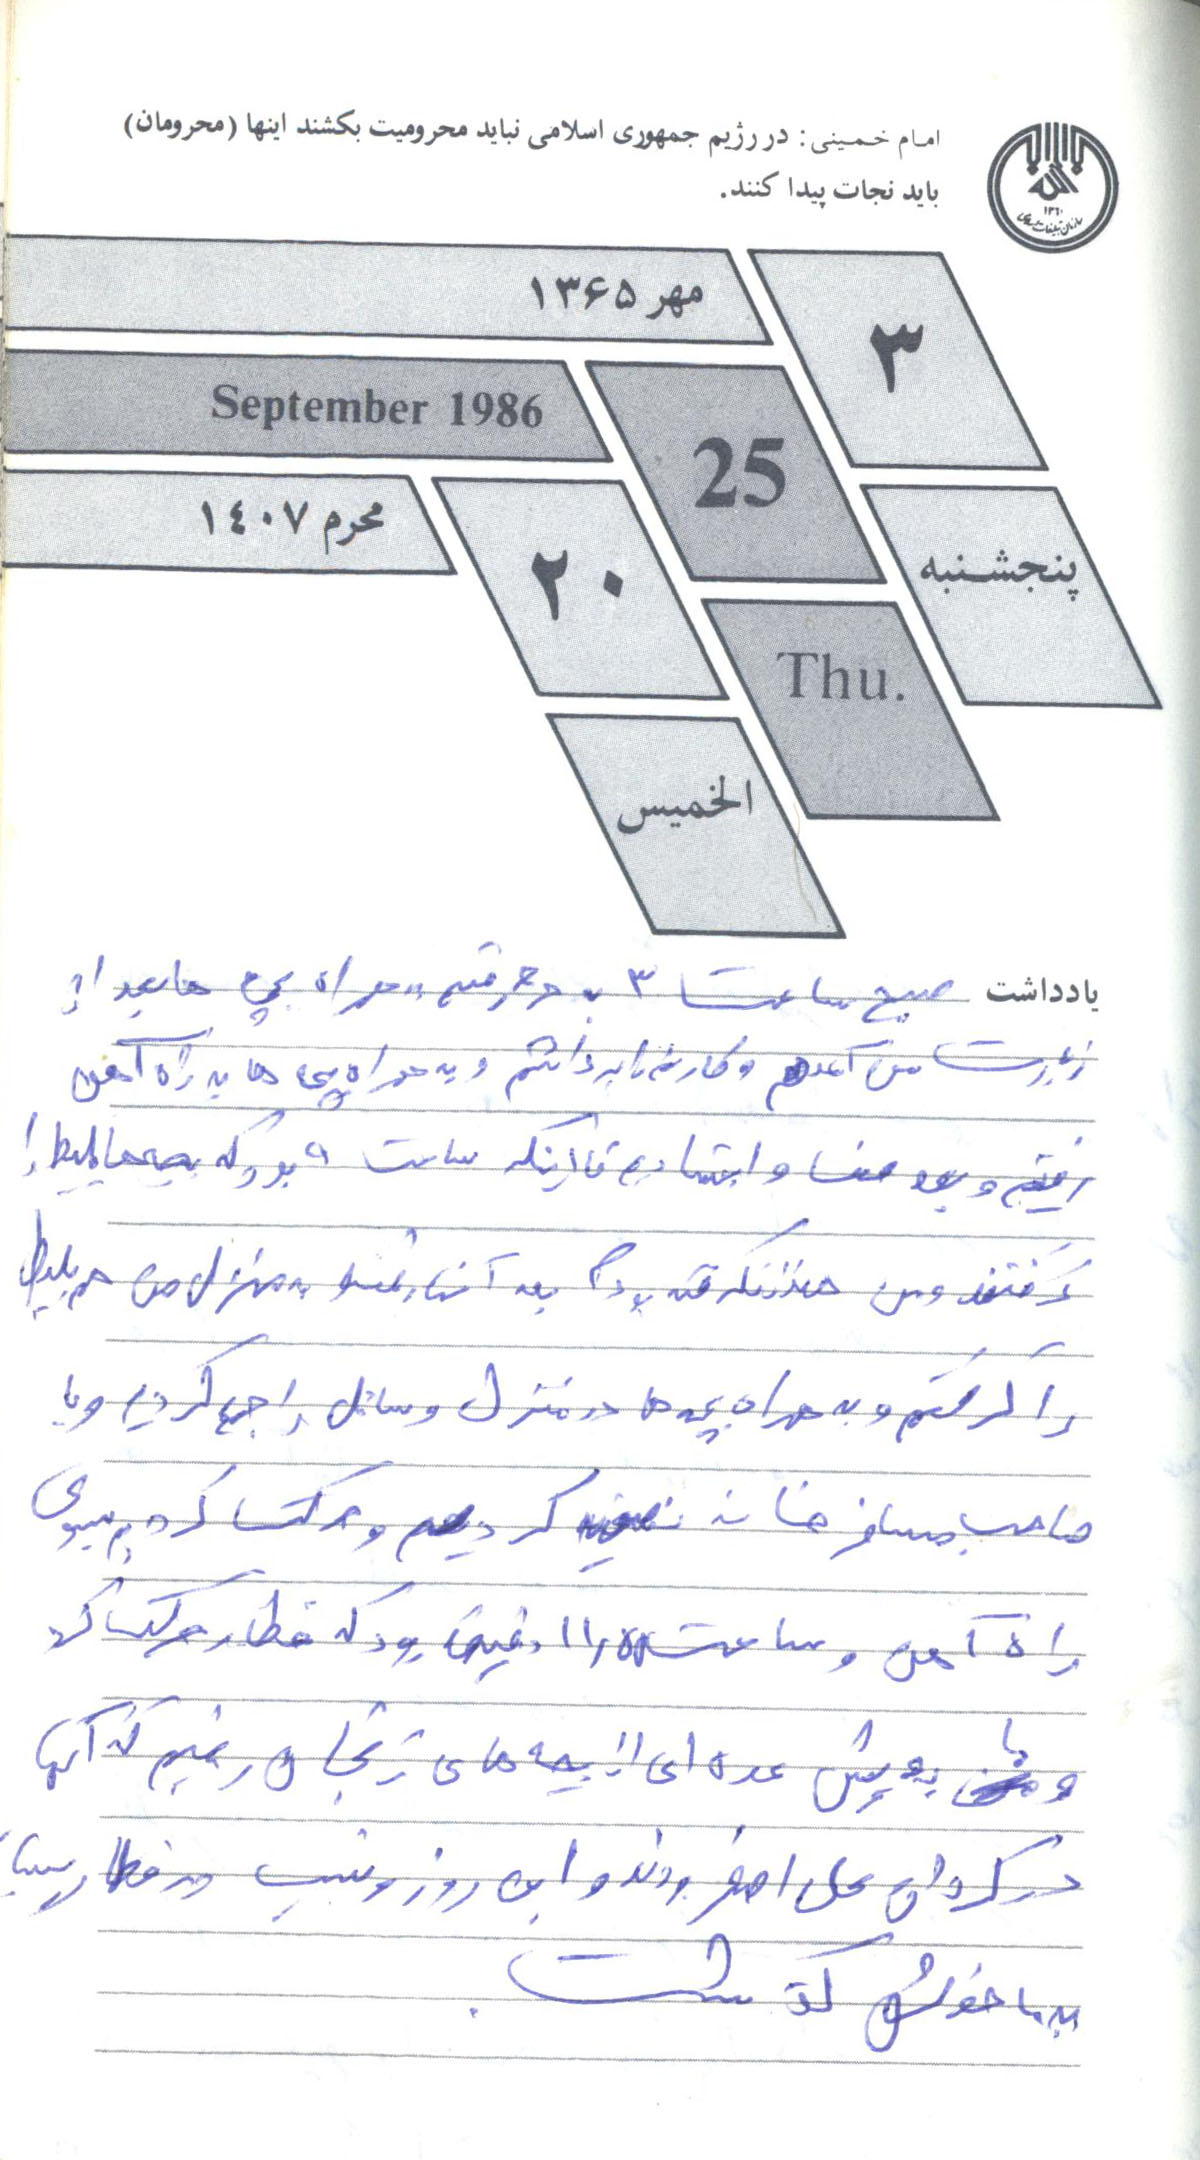 امام خمینی: در رژیم جمهوری اسلامی نباید محرومیت بکشند اینها (محرومان)
باید نجات پیدا کنند.
۱۳۶۰
سازمان تبلیغات اسلامی
۳
مهر ۱۳۶۵
25
September 1986
۲۰
محرم ١٤٠٧
پنجشنبه
Thu.
الخمیس
یادداشت صبح ساعت ۳ به حرم رفتیم به همراه بچه ها بعد از
زیارت من آمدم و کار داشتم و به همراه بچه ها به راه آهن
رفتیم و بعد صف وایستادیم تا اینکه ساعت ۹ بود که بچه ها بلیط را
گرفتند و من هنوز نگرفته بودم بعد آنها رفتند به منزل من هم بلیط
را گرفتم و به همراه بچه ها در منزل وسایل را جمع کردیم و با
صاحب مسافر خانه تصفیه کردیم و حرکت کردیم بسوی
راه آهن و ساعت دقیقه بود که قطار حرکت کرد
و ما به پیش عده ای از بچه های زنجان رفتیم که آنها
در گردان علی اصغر بودند و این روز و شب در قطار
به ما خوش گذشت.